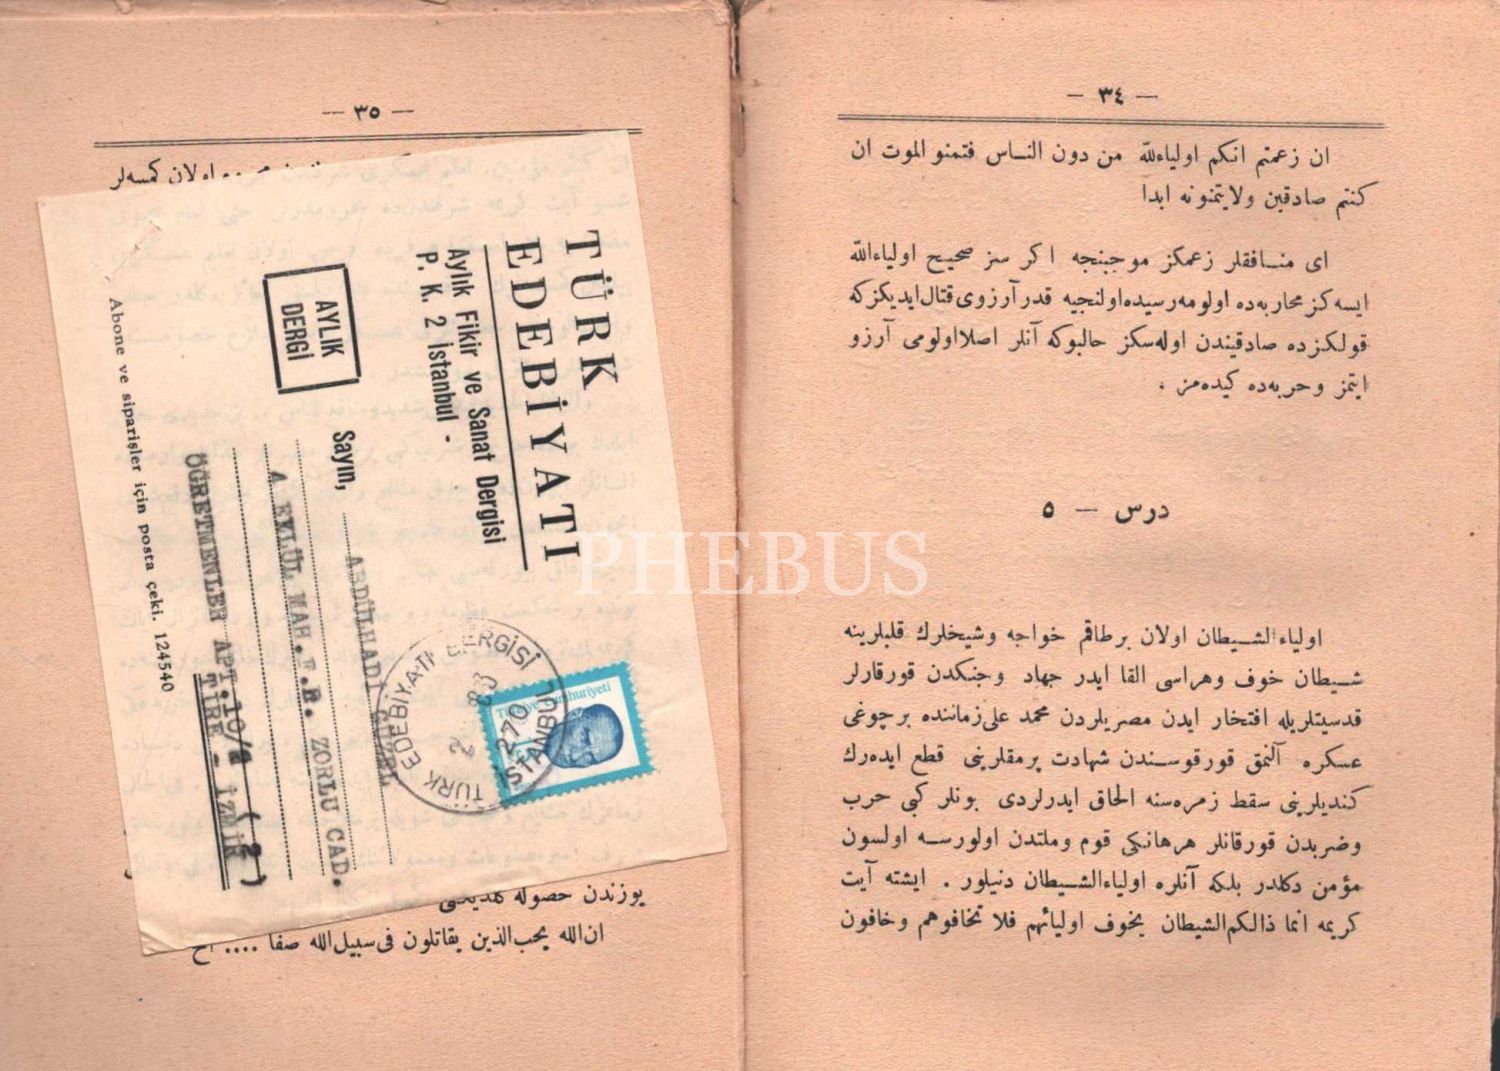 — ٣٤ —
ان زعمتم انكم اولياءلله من دون الناس فتمنو الموت ان
كنتم صادقين ولايتمنونه ابدا
اى منافقلر زعمكز موجبنجه اكر سز صحيح اولياءالله
ايسه‌كز محاربه‌ده اولومه‌رسيده‌اولنجيه قدر آرزوى قتال‌ايديكزكه
قولكزده صادقيندن اوله‌سكز حالبوكه آنلر اصلااولومى آرزو
ايتمز وحربه‌ده كيده‌مز .
درس — ٥
اولياءالشيطان اولان برطاقم خواجه وشيخلرك قلبلرينه
شيطان خوف وهراسى القا ايدر جهاد وجنكدن قورقارلر
قدسيتلريله افتخار ايدن مصريلردن محمد على‌زماننده برچوغى
عسكره آلنمق قورقوسندن شهادت پرمقلرينى قطع ايده‌رك
كنديلرينى سقط زمره‌سنه الحاق ايدرلردى بونلر كبى حرب
وضربدن قورقانلر هرهانكى قوم وملتدن اولورسه اولسون
مؤمن دكلدر بلكه آنلره اولياءالشيطان دنيلور . ايشته آيت
كريمه انما ذالكم‌الشيطان يخوف اوليائهم فلا تخافوهم وخافون
— ٣٥ —
اولان كمسه‌لر
TÜRK
EDEBİYATI
Aylık Fikir ve Sanat Dergisi
P. K. 2 İstanbul -
AYLIK
DERGİ
Sayın,
ABDÜLHADİ
4 EYLÜL MAH.F.R. ZORLU CAD.
ÖĞRETMENLER APT.10/
TİRE - İZMİR
Abone ve siparişler için posta çeki. 124540
TÜRK EDEBİYATI DERGİSİ
270
İSTANBUL
Türkiye Cumhuriyeti
يوزندن حصوله كلديكنى
ان‌الله يحب‌الذين يقاتلون فى‌سبيل‌الله صفا .... الخ
PHEBUS